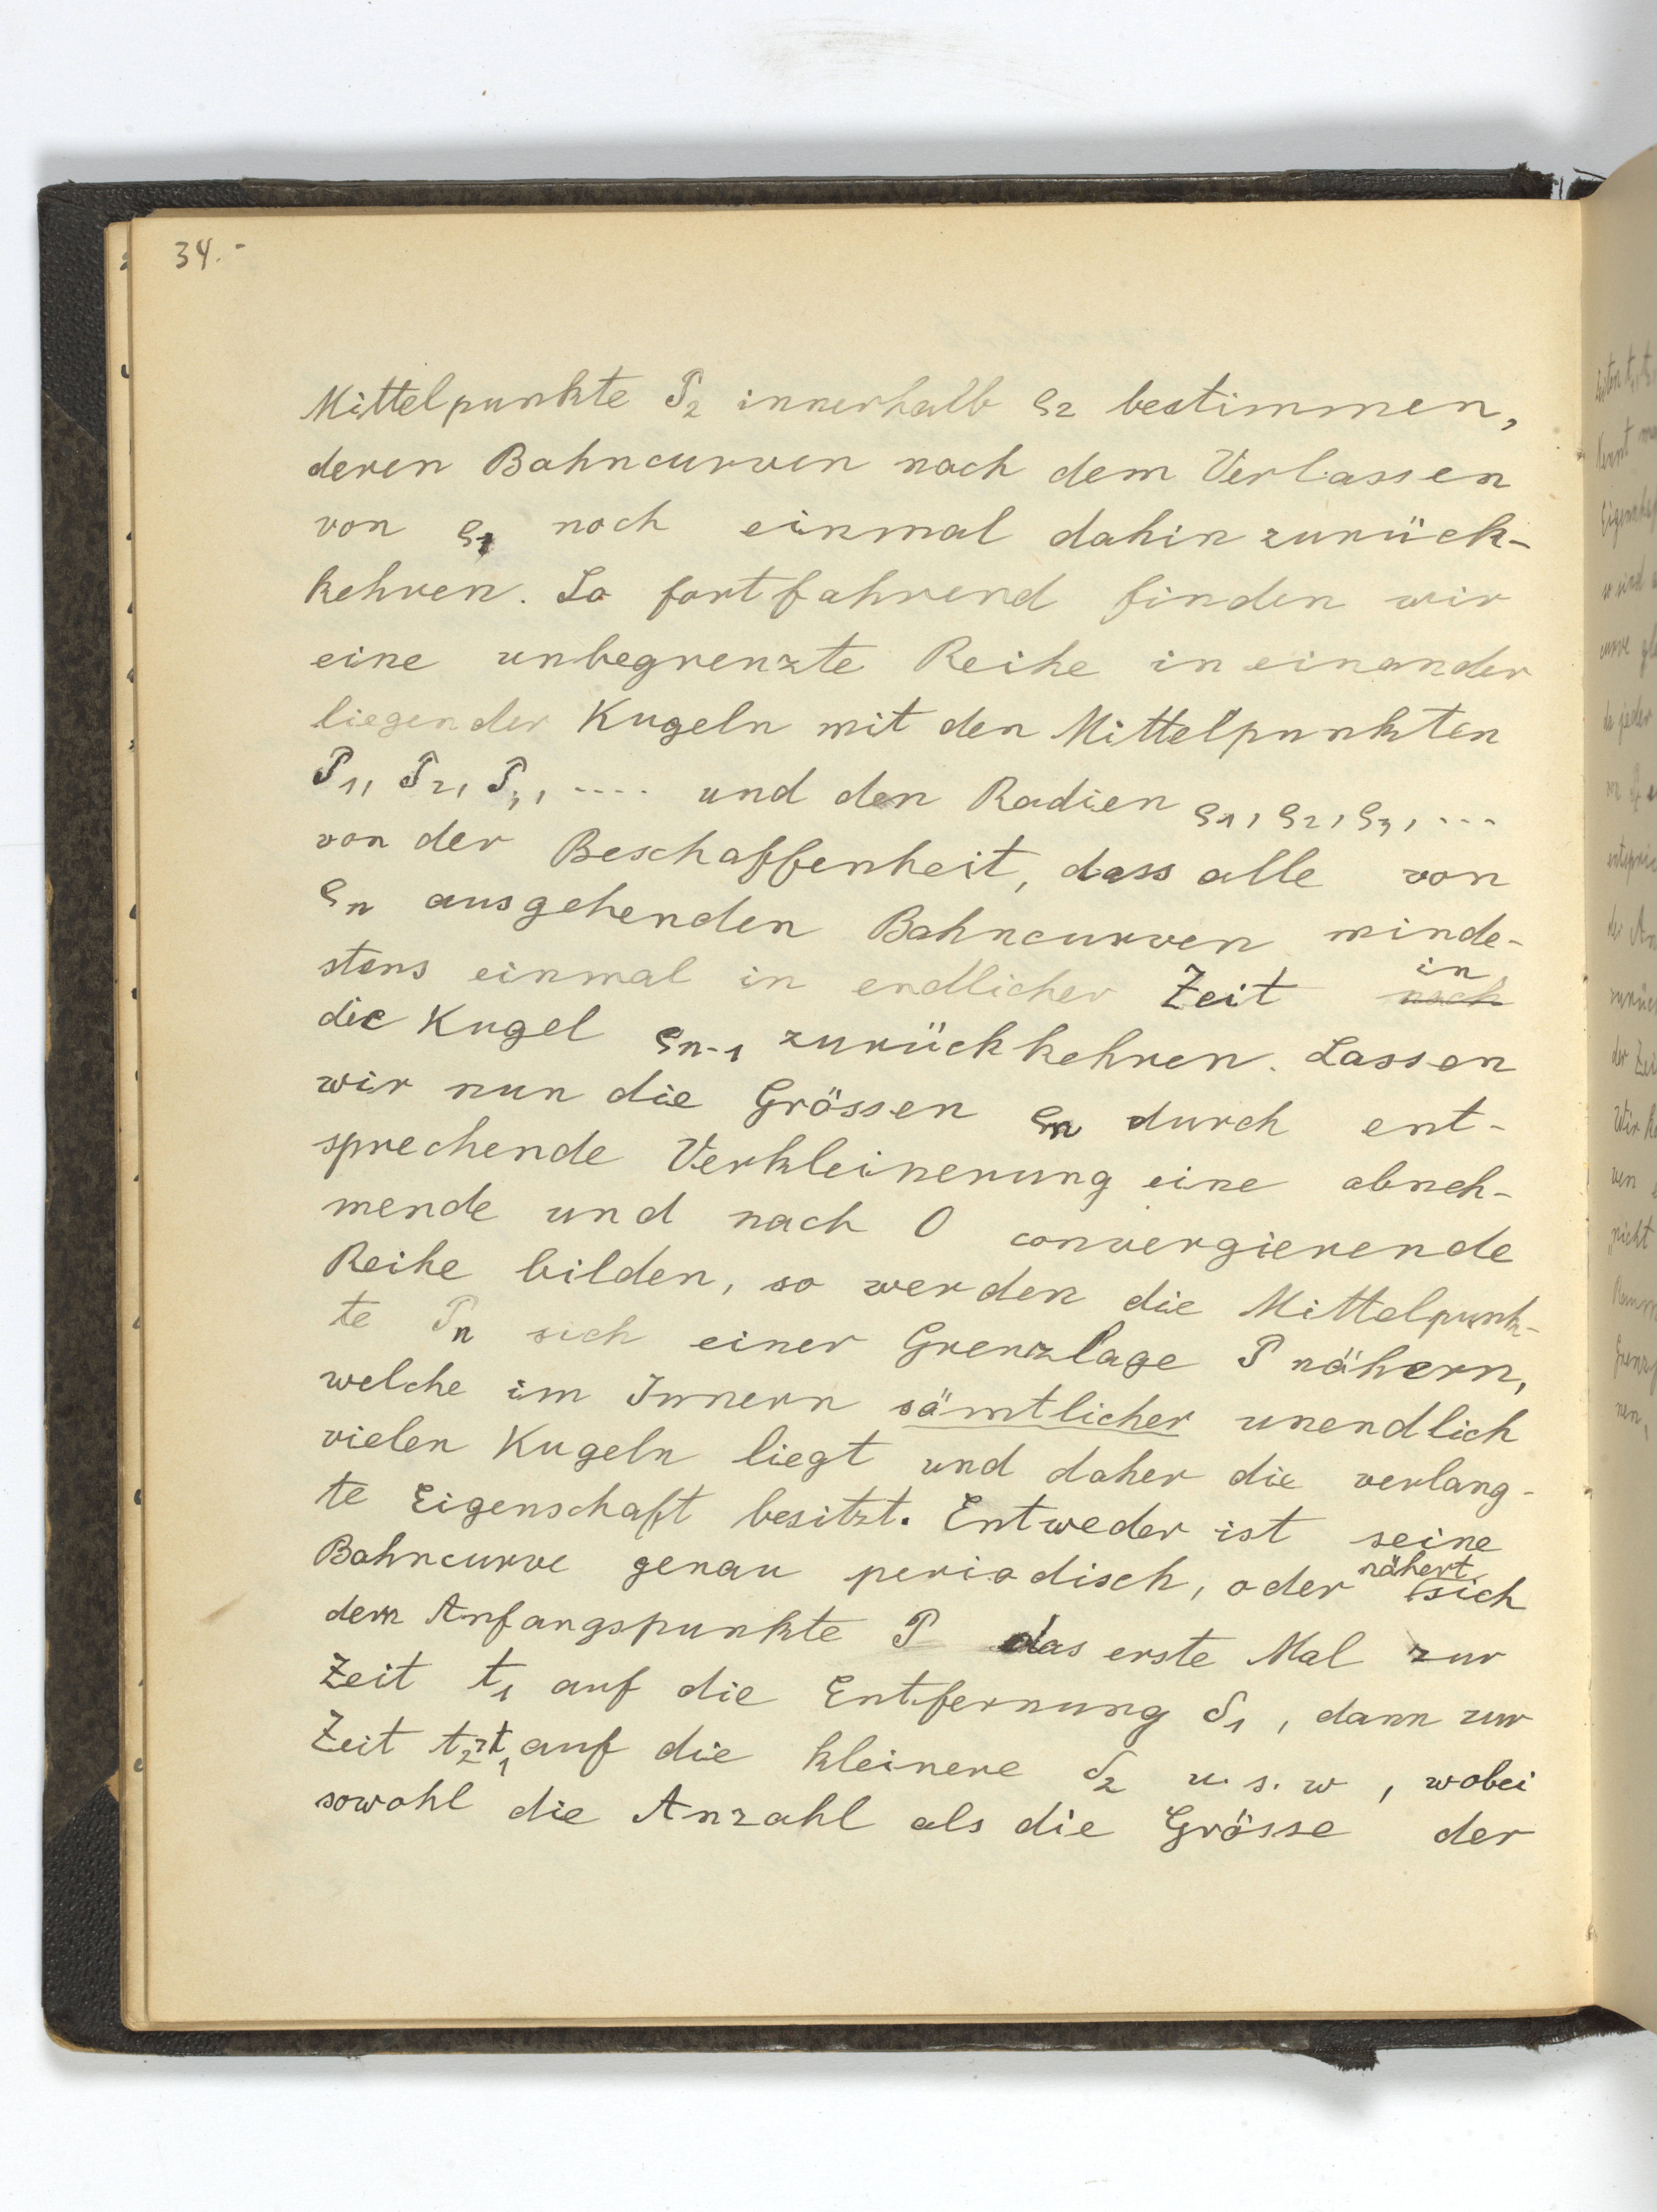 34.-
Mittelpunkte P₂ innerhalb ϱ₂ bestimmen,
deren Bahncurven nach dem Verlassen
von ϱ₁ noch einmal dahin zurück-
kehren. So fortfahrend finden wir
eine unbegrenzte Reihe in einander
liegender Kugeln mit den Mittelpunkten
P₁, P₂, P₃, .... und den Radien ϱ₁, ϱ₂, ϱ₃, ...
von der Beschaffenheit, dass alle von
ϱn ausgehenden Bahncurven minde-
stens einmal in endlicher Zeit nach in
die Kugel ϱn-1 zurückkehren. Lassen
wir nun die Grössen ϱn durch ent-
sprechende Verkleinerung eine abneh-
mende und nach 0 convergierende
Reihe bilden, so werden die Mittelpunk-
te Pn sich einer Grenzlage P nähern,
welche im Innern sämtlicher unendlich
vielen Kugeln liegt und daher die verlang-
te Eigenschaft besitzt. Entweder ist seine
Bahncurve genau periodisch, oder nähert sich
dem Anfangspunkte P das erste Mal zur
Zeit t₁ auf die Entfernung δ₁, dann zur
Zeit t₂>t₁ auf die kleinere δ₂ u. s. w, wobei
sowohl die Anzahl als die Grösse der